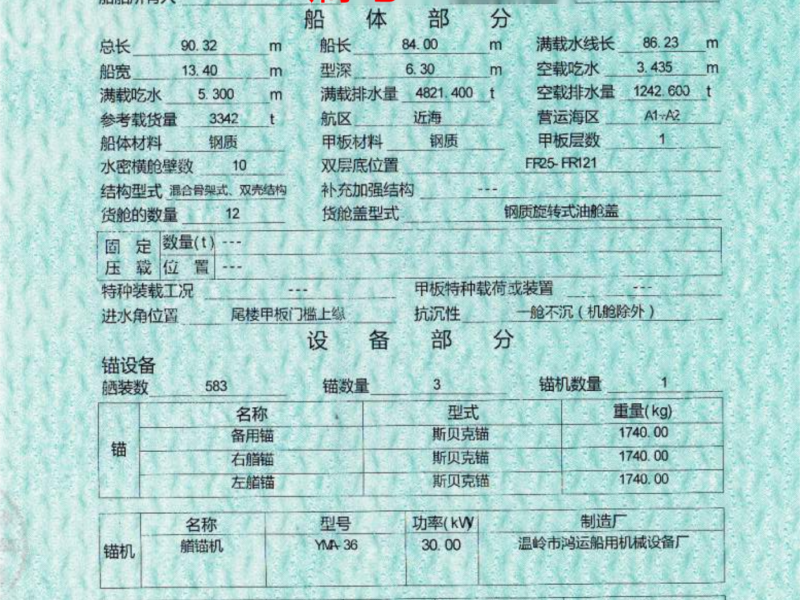 船 体 部 分
总长 90.32 m 船长 84.00 m 满载水线长 86.23 m
船宽 13.40 m 型深 6.30 m 空载吃水 3.435 m
满载吃水 5.300 m 满载排水量 4821.400 t 空载排水量 1242.600 t
参考载货量 3342 t 航区 近海 营运海区 A1+A2
船体材料 钢质 甲板材料 钢质 甲板层数 1
水密横舱壁数 10 双层底位置 FR25-FR121
结构型式 混合骨架式、双壳结构 补充加强结构 ---
货舱的数量 12 货舱盖型式 钢质旋转式油舱盖
固定压载 数量(t) ---
位置 ---
特种装载工况 --- 甲板特种载荷或装置 ---
进水角位置 尾楼甲板门槛上纵 抗沉性 一舱不沉(机舱除外)
设 备 部 分
锚设备
舾装数 583 锚数量 3 锚机数量 1
锚 名称 型式 重量(kg)
备用锚 斯贝克锚 1740.00
右艏锚 斯贝克锚 1740.00
左艏锚 斯贝克锚 1740.00
锚机 名称 型号 功率(kW) 制造厂
艏锚机 YMA-36 30.00 温岭市鸿运船用机械设备厂